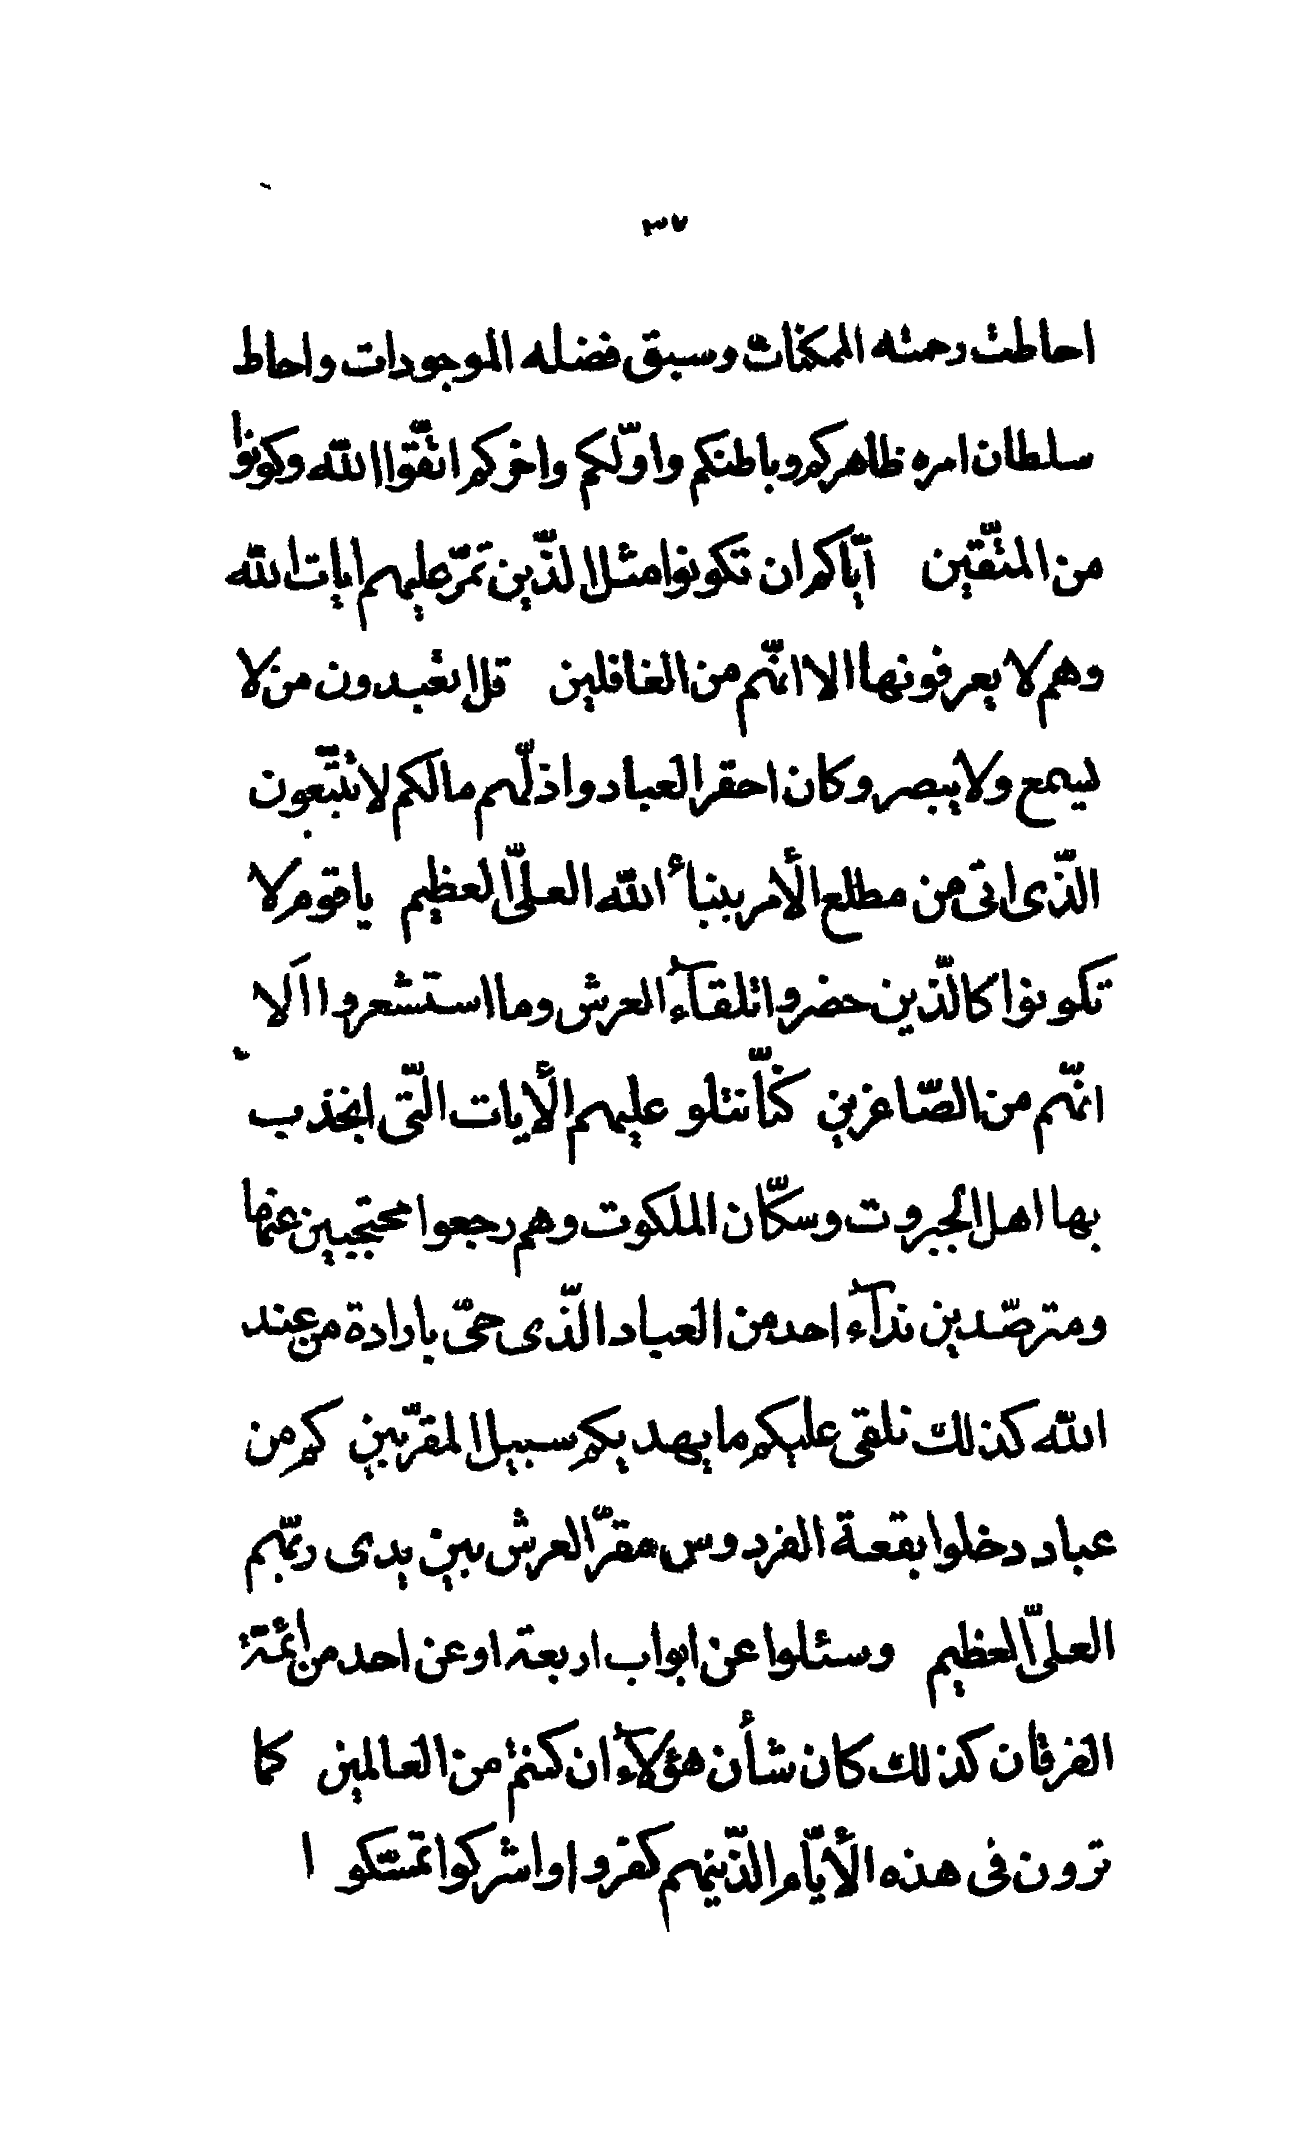 ٣٧
احاطت رحمته الممكنات و سبق فضله الموجودات واحاط
سلطان امره ظاهركم وباطنكم واوّلكم واخركم اتّقوا الله وكونوا
من المتّقين ايّاكم ان تكونوا مثل الّذين تمرّ عليهم ايات الله
وهم لا يعرفونها الا انّهم من الغافلين قل اتعبدون من لا
يسمع ولا يبصر وكان احقر العباد واذلّهم مالكم لا تتّبعون
الّذى اتى من مطلع الأمر بنبأ الله العلىّ العظيم يا قوم لا
تكونوا كالّذين حضروا تلقآء العرش وما استشعروا الَا
انّهم من الصّاغرين كنّا نتلو عليهم الأيات الّتى انجذب
بها اهل الجبروت وسكّان الملكوت وهم رجعوا محتجبين عنها
ومترصّدين ندآء احد من العباد الّذى حىّ بارادة من عند
الله كذلك نلقى عليكم ما يهديكم سبيل المقرّبين كم من
عباد دخلوا بقعة الفردوس مقرّ العرش بين يدى ربّهم
العلىّ العظيم وسئلوا عن ابواب اربعة او عن احد من ائمّة
الفرقان كذلك كان شأن هؤلآء ان كنتم من العالمين كما
ترون فى هذه الأيّام الّذينهم كفروا واشركوا تمسّكوا